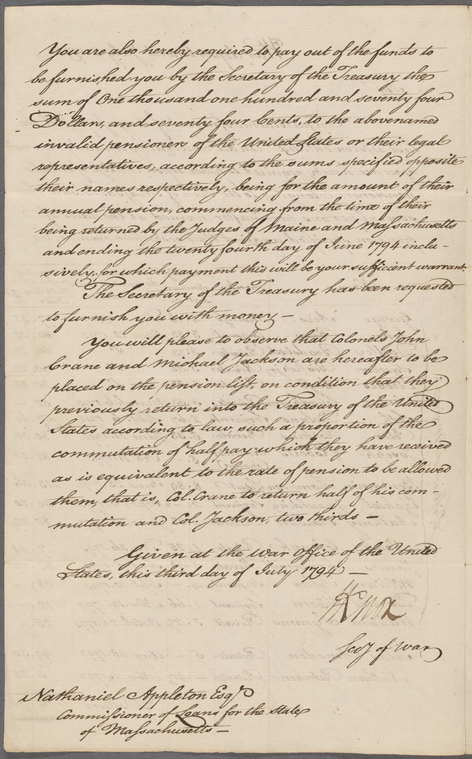 You are also hereby required to pay out of the funds to
be furnished you by the Secretary of the Treasury the
sum of One thousand one hundred and seventy four
Dollars, and seventy four Cents, to the abovenamed
invalid pensioners of the United States or their legal
representatives, according to the sums specified opposite
their names respectively, being for the amount of their
annual pension, commencing from the time of their
being returned by the Judges of Maine and Massachusetts
and ending the twenty fourth day of June 1794 inclu-
sively, for which payment this will be your sufficient warrant.
The Secretary of the Treasury has been requested
to furnish you with money —
You will please to observe that Colonels John
Crane and Michael Jackson are hereafter to be
placed on the pension list, on condition that they
previously return into the Treasury of the United
States according to law, such a proportion of the
commutation of half pay which they have received
as is equivalent to the rate of pension to be allowed
them, that is, Col. Crane to return half of his com-
mutation and Col. Jackson, two thirds —
Given at the War Office of the United
States, this third day of July 1794 —
HKnox
Secy of War
Nathaniel Appleton Esqr
Commissioner of Loans for the state
of Massachusetts —